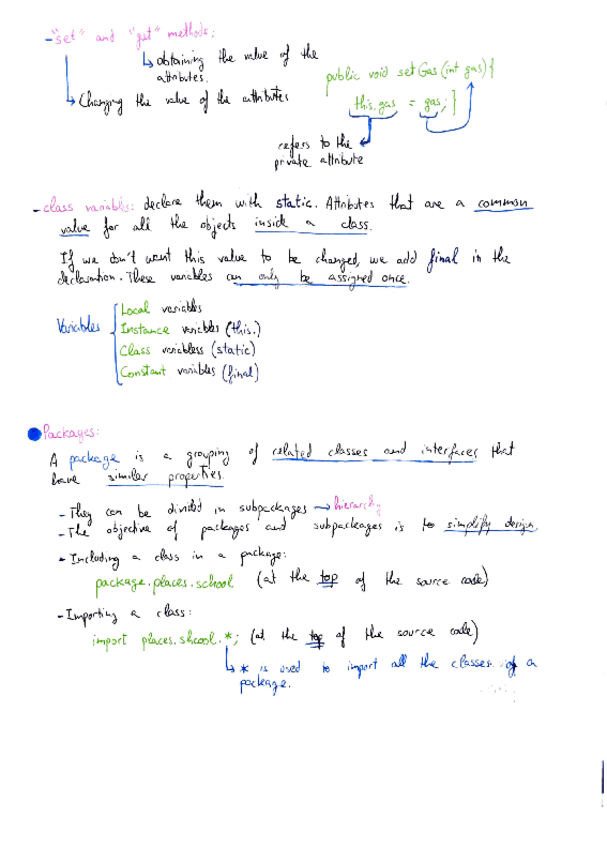 - "set" and "get" methods:
↳ obtaining the value of the
attributes.
↳ Changing the value of the attributes
public void setGas (int gas) {
this.gas = gas; }
refers to the
private attribute
- class variables: declare them with static. Attributes that are a common
value for all the objects inside a class.
If we don't want this value to be changed, we add final in the
declaration. These variables can only be assigned once.
Variables
Local variables
Instance variables (this.)
Class variabless (static)
Constant variables (final)
Packages:
A package is a grouping of related classes and interfaces that
have similar properties.
- They can be divided in subpackages → hierarchy
- The objective of packages and subpackages is to simplify design.
- Including a class in a package:
package.places.school (at the top of the source code)
- Importing a class:
import places.shcool.*; (at the top of the source code)
↳ * is used to import all the classes of a
package.